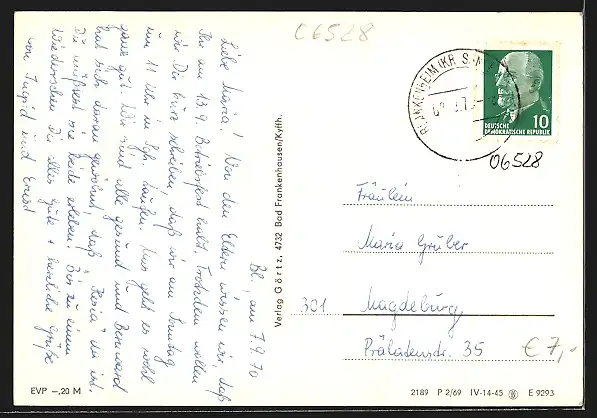 06528
BLANKENHEIM (KR. S
10
DEUTSCHE
DEMOKRATISCHE REPUBLIK
06528
Bl., am 7.9.70
Liebe Maria! Von den Eltern wissen wir, daß
Ihr am 13.9. Betriebsfest habt. Trotzdem wollen
wir Dir kurz schreiben, daß wir am Sonntag
um 11 Uhr in Sch. taufen. Uns geht es wohl
ganz gut. Wir sind alle gesund und Bernward
hat sich daran gewöhnt, daß "Resia" da ist.
Du müßtest sie beide erleben! Bis zu einem
Wiedersehen Dir alles Gute + herzliche Grüße
von Ingrid und Ernst
Verlag Görtz, 4732 Bad Frankenhausen/Kyffh.
Fräulein
Maria Gruber
301 Magdeburg
Prälatenstr. 35
€ 7,-
EVP –,20 M
2189 P 2/69 IV-14-45 E 9293